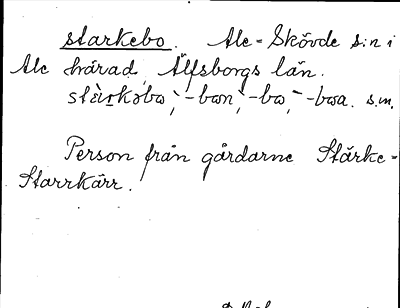 starkebo. Ale-Skövde s:n i
Ale härad, Älfsborgs län.
stàrkəbo, -bon, -bo, -boa. s.m.
Person från gårdarne Stärke-
Starrkärr.